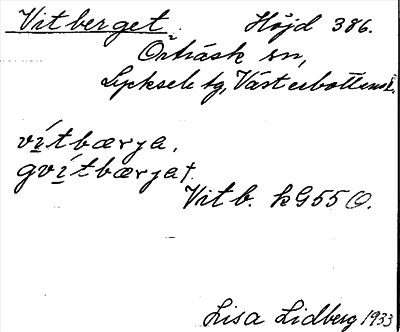 Vitberget Höjd 386.
Örträsk sn,
Lycksele tg, Västerbottensl.
vítbærja,
gvítbærjat.
Vitb. kG55 O.
Lisa Lidberg 1933